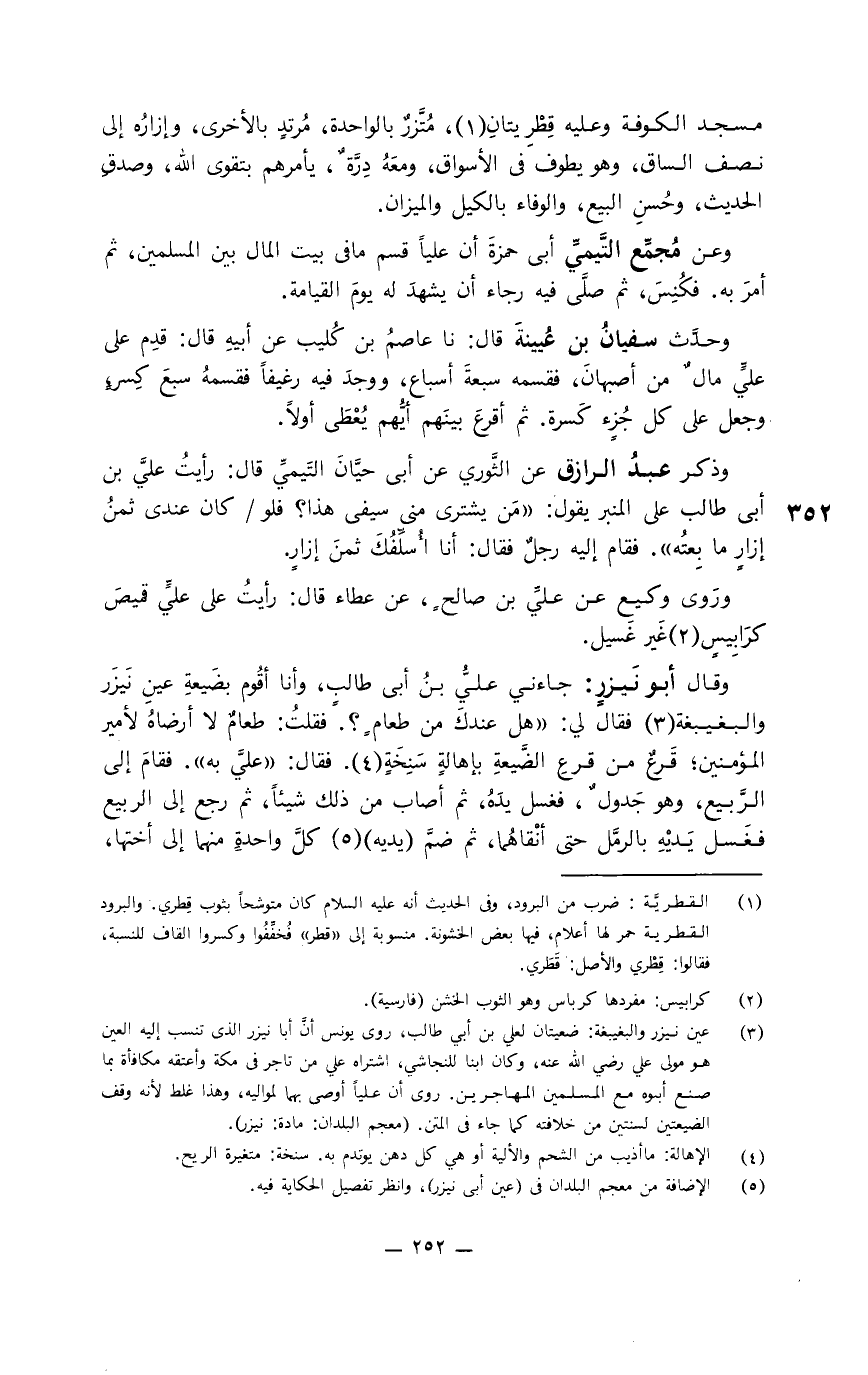 مسجد الكوفة وعليه قِطْرِيتانِ(١)، مُتَّزرٌ بالواحدة، مُرتدٍ بالأخرى، وإزارُه إلى
نصف الساق، وهو يطوف فى الأسواق، ومعَهُ دِرَّةٌ، يأمرهم بتقوى الله، وصدقِ
الحديث، وحُسنِ البيع، والوفاء بالكيل والميزان.
وعن مُجمِّع التَّيميِّ أبى حمزةَ أن علياً قسم مافى بيت المال بين المسلمين، ثم
أمرَ به. فكُنِسَ، ثم صلَّى فيه رجاء أن يشهدَ له يومَ القيامة.
وحدَّث سفيانُ بن عُيينةَ قال: نا عاصمُ بن كُليب عن أبيهِ قال: قدِم على
عليٍّ مالٌ من أصبهانَ، فقسمه سبعةَ أسباع، ووجدَ فيه رغيفاً فقسمهُ سبعَ كِسرٍ
وجعل على كل جُزءٍ كَسرة. ثم أقرعَ بينَهم أيُّهم يُعْطَى أولاً.
وذكر عبدُ الرازق عن الثَّوري عن أبى حيَّانَ التَيميِّ قال: رأيتُ عليَّ بن
أبى طالب على المنبر يقول: «مَن يشترى منى سيفى هذا؟ فلو / كان عندى ثمنُ ٣٥٢
إزارٍ ما بِعتُه». فقام إليه رجلٌ فقال: أنا أُسلِّفُكَ ثمنَ إزارٍ.
ورَوى وكيع عن عليِّ بن صالحٍ، عن عطاء قال: رأيتُ على عليٍّ قميصَ
كرَابِيسٍ(٢)غَير غَسيل.
وقال أبو نَيزرٍ: جاءني عليُّ بنُ أبى طالبٍ، وأنا أقُوم بضَيعةِ عينِ نَيزَر
والبغيبغة(٣) فقال لي: «هل عندكَ من طعامٍ؟. فقلتُ: طعامٌ لا أرضاهُ لأمير
المؤمنين؛ قَرعٌ من قرع الضَّيعةِ بإهالةٍ سَنِخَةٍ(٤). فقال: «عليَّ به». فقامَ إلى
الرَّبيع، وهو جَدولٌ، فغسل يدَهُ، ثم أصاب من ذلك شيئاً، ثم رجع إلى الربيع
فغَسل يَديْهِ بالرمَّل حتى أنْقاهُما، ثم ضمَّ (يديه)(٥) كلَّ واحدةٍ منهما إلى أختها،
(١) القطريَّة : ضرب من البرود، وفى الحديث أنه عليه السلام كان متوشحاً بثوب قِطري. والبرود
القطرية حمر لها أعلام، فيها بعض الخشونة. منسوبة إلى «قطر» فُخفِّفُوا وكسروا القاف للنسبة،
فقالوا: قِطْري والأصل: قَطَري.
(٢) كرابيس: مفردها كرباس وهو الثوب الخشن (فارسية).
(٣) عين نيزر والبغيبغة: ضعيتان لعلي بن أبي طالب، روى يونس أنَّ أبا نيزر الذى تنسب إليه العين
هو مولى علي رضي الله عنه، وكان ابنا للنجاشي، اشتراه علي من تاجر فى مكة وأعتقه مكافأة بما
صنع أبوه مع المسلمين المهاجرين. روى أن علياً أوصى بها لمواليه، وهذا غلط لأنه وقف
الضيعتين لسنتين من خلافته كما جاء فى المتن. (معجم البلدان: مادة: نيزر).
(٤) الإهالة: ماأذيب من الشحم والألية أو هي كل دهن يوتدم به. سنخة: متغيرة الريح.
(٥) الإضافة من معجم البلدان فى (عين أبى نيزر)، وانظر تفصيل الحكاية فيه.
— ٢٥٢ —